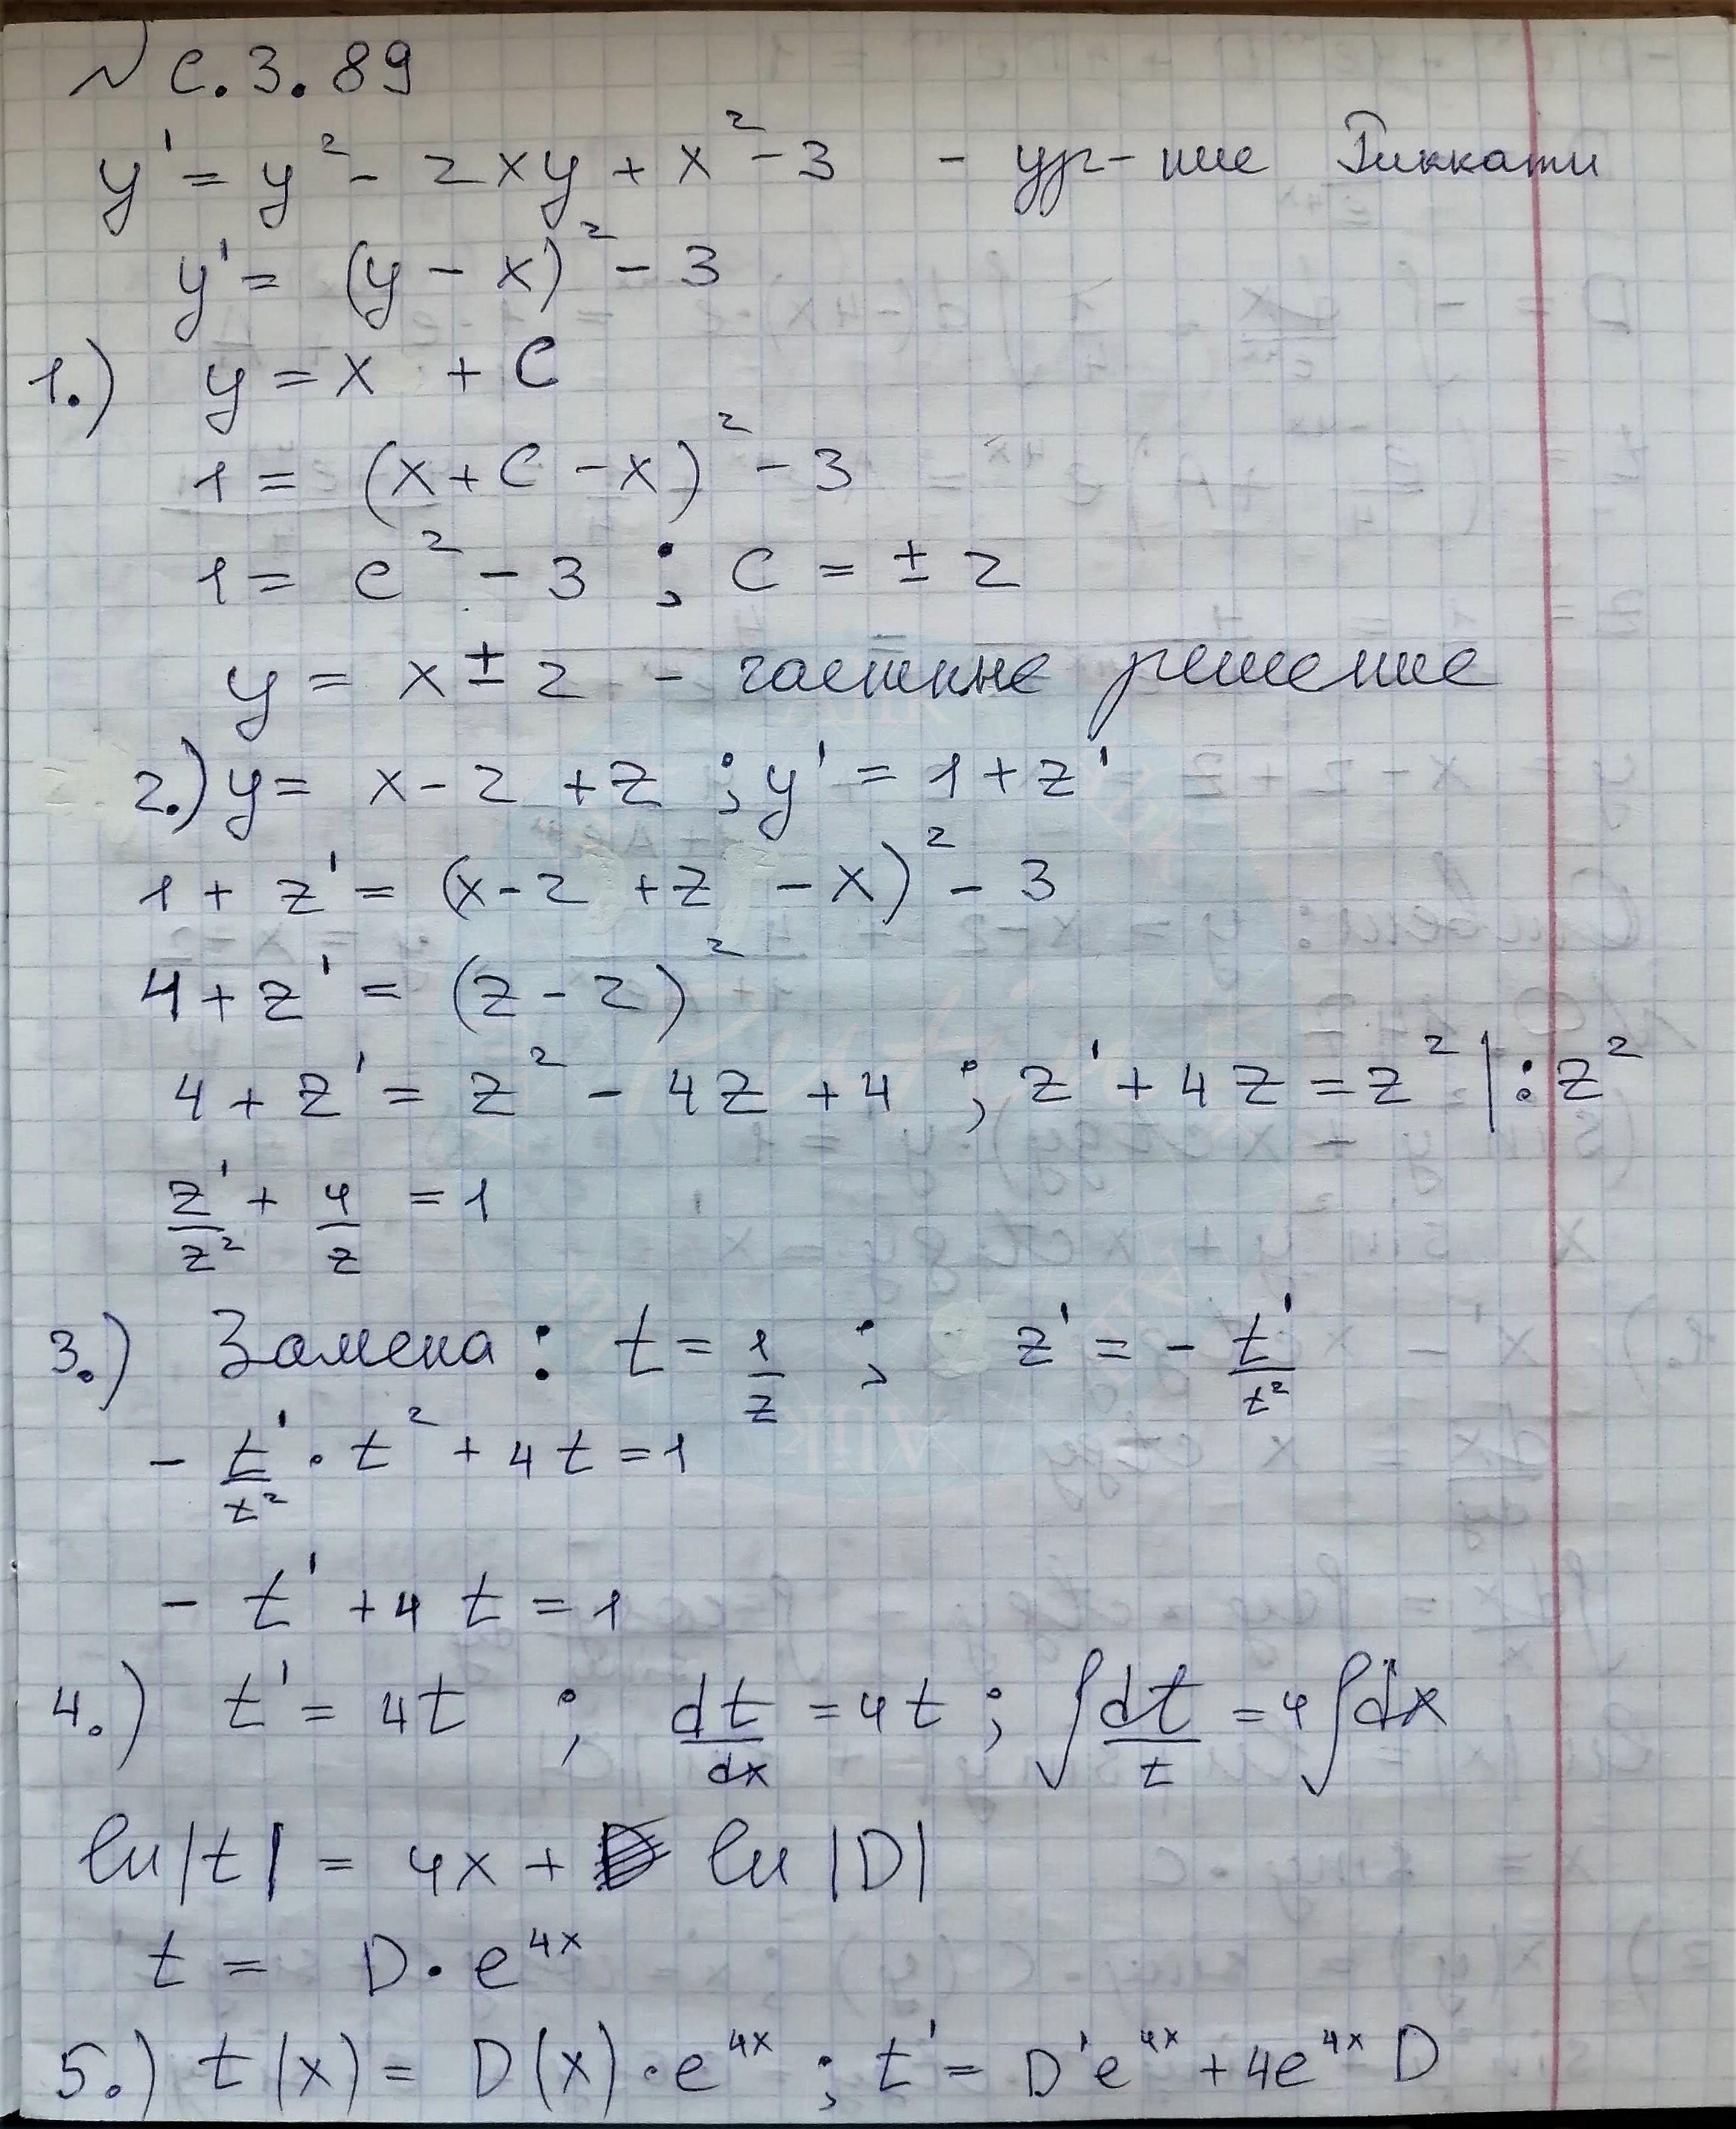 № С.3.89
y' = y² - 2xy + x² - 3 - ур-ние Риккати
y' = (y - x)² - 3
1.) y = x + C
1 = (x + C - x)² - 3
1 = C² - 3 ; C = ± 2
y = x ± 2 - частное решение
2.) y = x - 2 + z ; y' = 1 + z'
1 + z' = (x - 2 + z - x)² - 3
4 + z' = (z - 2)²
4 + z' = z² - 4z + 4 ; z' + 4z = z² | : z²
z'/z² + 4/z = 1
3.) Замена : t = 1/z ; z' = - t'/t²
- t'/t² · t² + 4t = 1
- t' + 4t = 1
4.) t' = 4t ; dt/dx = 4t ; ∫ dt/t = 4∫dx
ln|t| = 4x + ln|D|
t = D · e^{4x}
5.) t(x) = D(x) · e^{4x} ; t' = D'e^{4x} + 4e^{4x} D